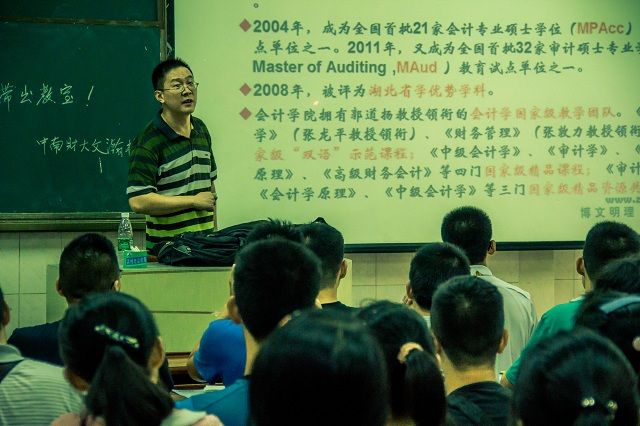 带出教室！
中南财大文瀚
◆2004年，成为全国首批21家会计专业硕士学位（MPAcc）
点单位之一。2011年，又成为全国首批32家审计硕士专业
Master of Auditing ,MAud ）教育试点单位之一。
◆2008年，被评为湖北省学优势学科。
◆会计学院拥有郭道扬教授领衔的会计学国家级教学团队。
学》（张龙平教授领衔）、《财务管理》（张敦力教授领
家级“双语”示范课程；《中级会计学》、《审计学》、《
原理》、《高级财务会计》等四门国家级精品课程；《审计
《会计学原理》、《中级会计学》等三门国家级精品资源共
www.z
博文明理